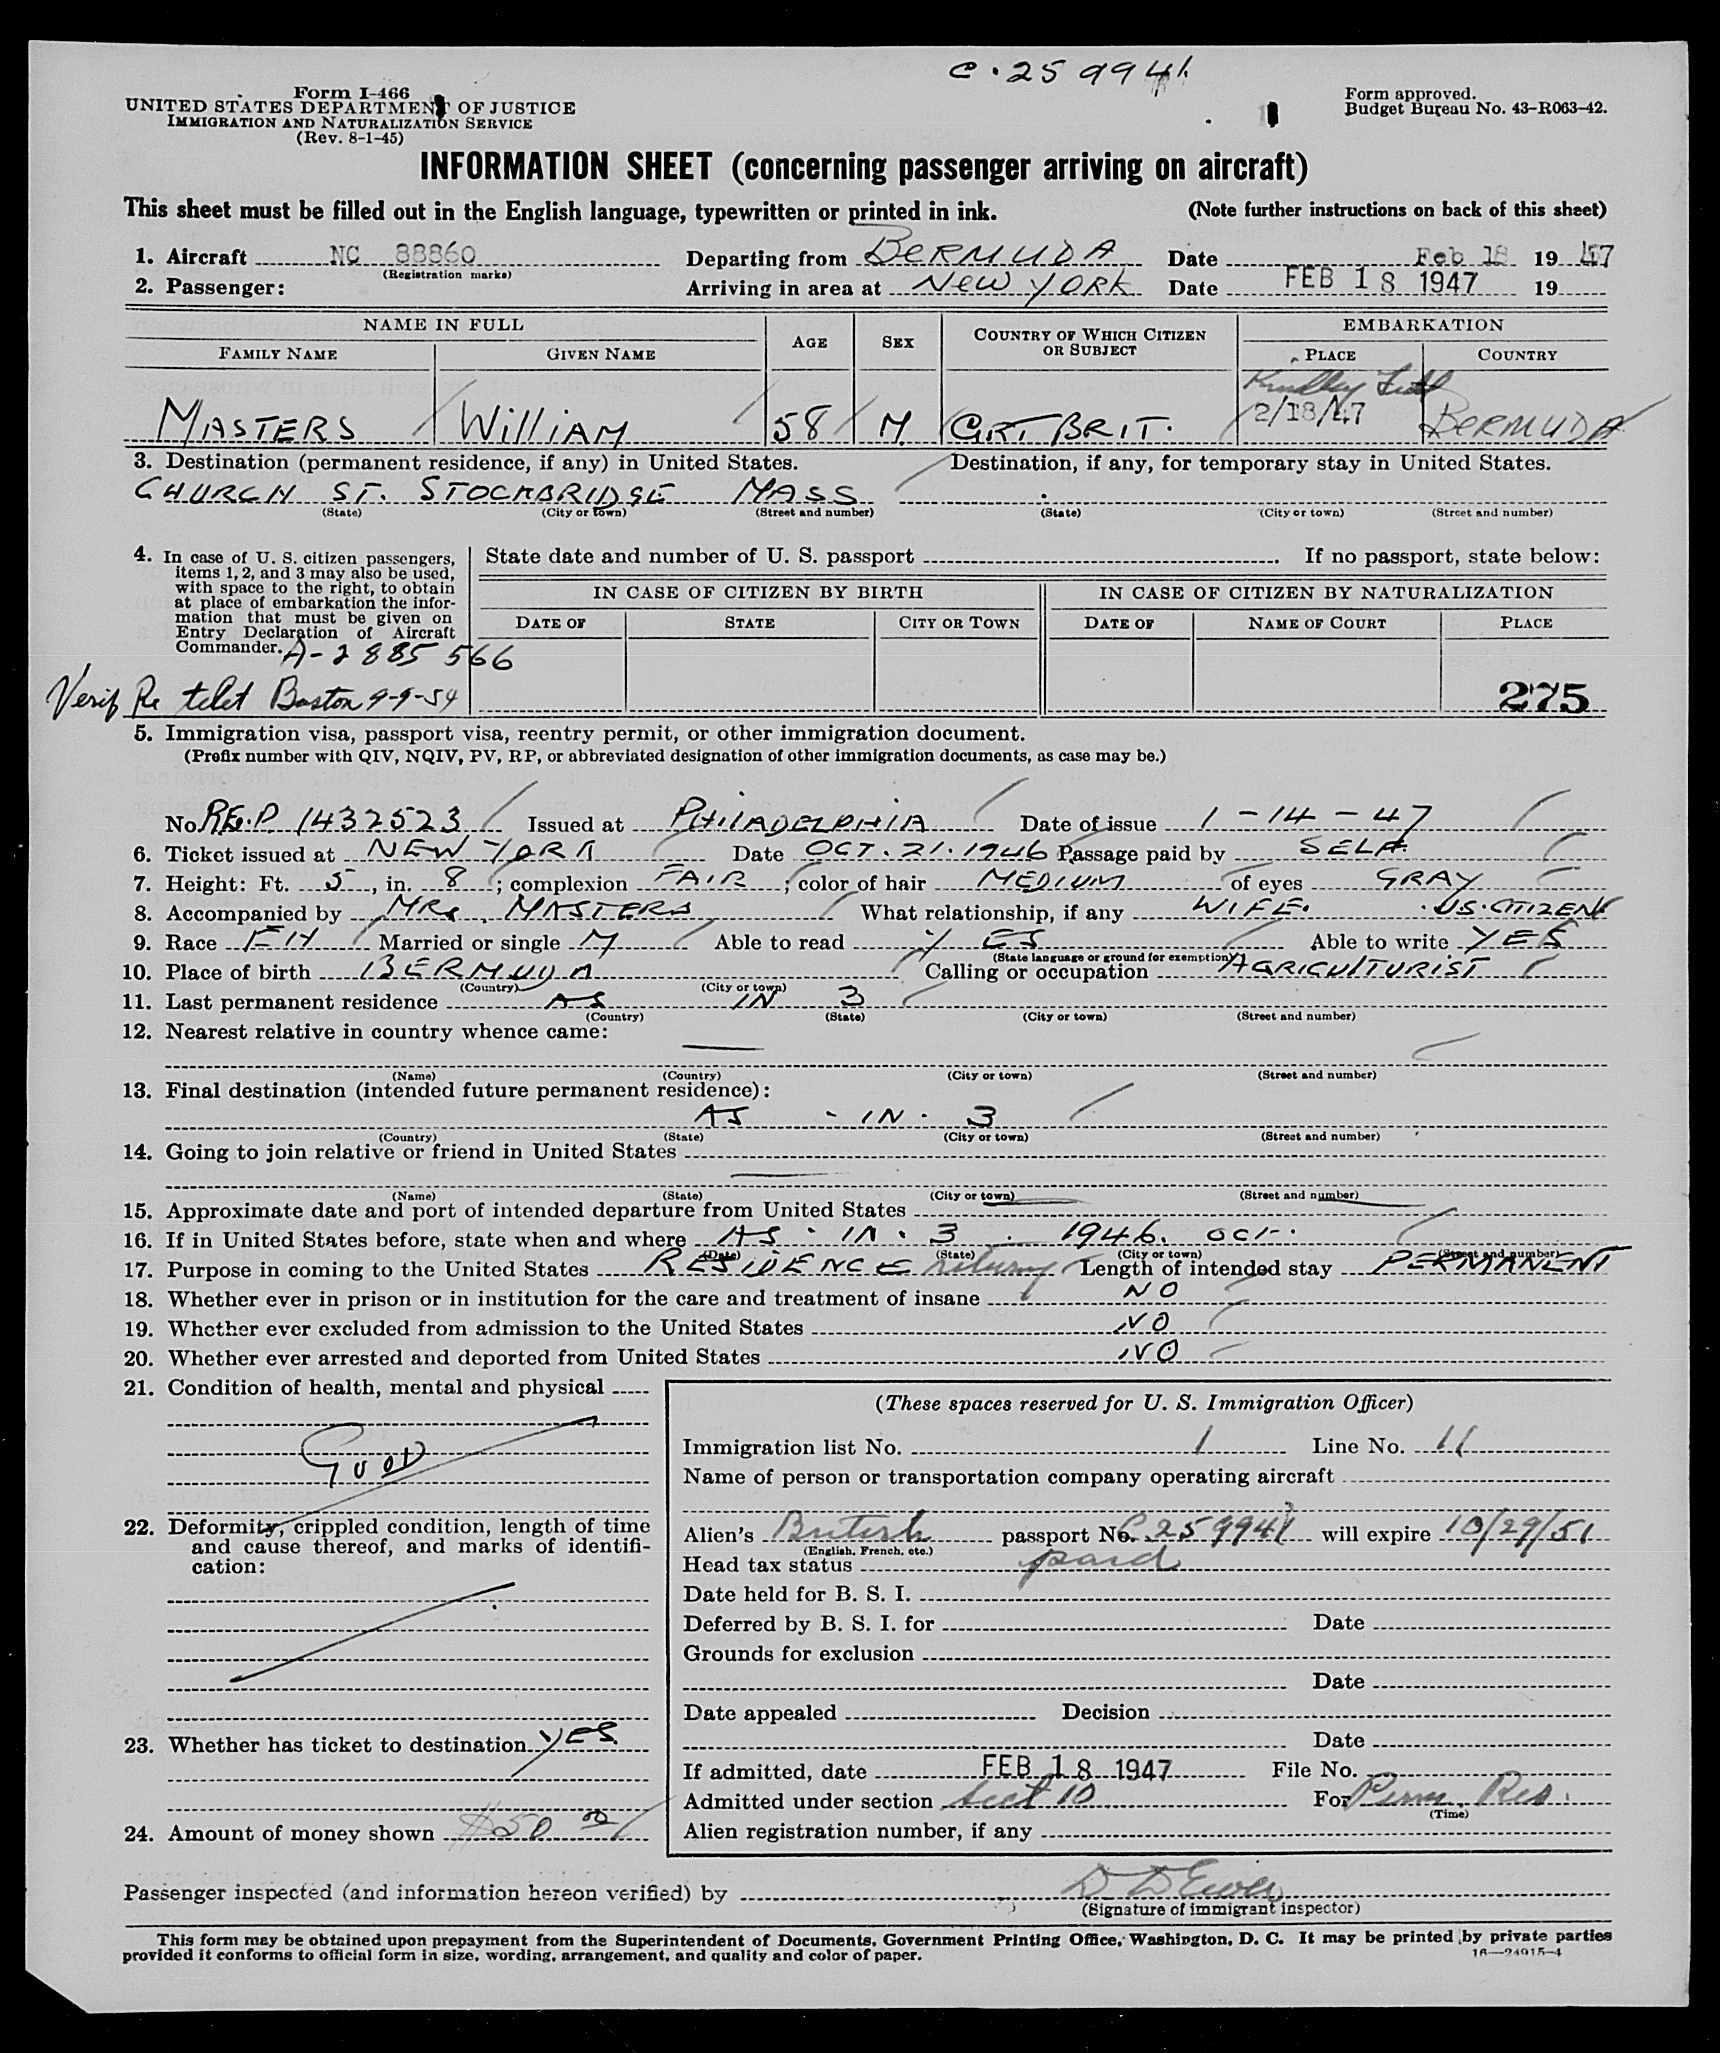 C.259941
Form I-466
UNITED STATES DEPARTMENT OF JUSTICE
IMMIGRATION AND NATURALIZATION SERVICE
(Rev. 8-1-45)
Form approved.
Budget Bureau No. 43-R063-42.
INFORMATION SHEET (concerning passenger arriving on aircraft)
This sheet must be filled out in the English language, typewritten or printed in ink. (Note further instructions on back of this sheet)
1. Aircraft NC 88860 Departing from BERMUDA Date Feb 18 1947
(Registration marks)
2. Passenger: Arriving in area at NEW YORK Date FEB 18 1947 19
NAME IN FULL AGE SEX COUNTRY OF WHICH CITIZEN OR SUBJECT EMBARKATION
FAMILY NAME GIVEN NAME PLACE COUNTRY
Kindley Field
MASTERS WilliAM 58 M GRT BRIT. 2/18/47 BERMUDA
3. Destination (permanent residence, if any) in United States. Destination, if any, for temporary stay in United States.
CHURCH ST. STOCKBRIDGE MASS
(State) (City or town) (Street and number) (State) (City or town) (Street and number)
4. In case of U. S. citizen passengers,
items 1, 2, and 3 may also be used,
with space to the right, to obtain
at place of embarkation the infor-
mation that must be given on
Entry Declaration of Aircraft
Commander.
State date and number of U. S. passport If no passport, state below:
IN CASE OF CITIZEN BY BIRTH IN CASE OF CITIZEN BY NATURALIZATION
DATE OF STATE CITY OR TOWN DATE OF NAME OF COURT PLACE
A-2885566
Verif Re telet Boston 9-9-54
275
5. Immigration visa, passport visa, reentry permit, or other immigration document.
(Prefix number with QIV, NQIV, PV, RP, or abbreviated designation of other immigration documents, as case may be.)
No. RE.P. 1432523 Issued at PHILADELPHIA Date of issue 1-14-47
6. Ticket issued at NEW YORK Date OCT. 21. 1946 Passage paid by SELF.
7. Height: Ft. 5, in. 8; complexion FAIR; color of hair MEDIUM of eyes GRAY
8. Accompanied by MRS. MASTERS What relationship, if any WIFE. U.S. CITIZEN
9. Race EH Married or single M Able to read YES Able to write YES
(State language or ground for exemption)
10. Place of birth BERMUDA Calling or occupation AGRICULTURIST
(Country) (City or town)
11. Last permanent residence AS IN 3
(Country) (State) (City or town) (Street and number)
12. Nearest relative in country whence came:
(Name) (Country) (City or town) (Street and number)
13. Final destination (intended future permanent residence):
AS - IN - 3
(Country) (State) (City or town) (Street and number)
14. Going to join relative or friend in United States
(Name) (State) (City or town) (Street and number)
15. Approximate date and port of intended departure from United States
16. If in United States before, state when and where AS. IN. 3. 1946. OCT.
(Date) (State) (City or town) (Street and number)
17. Purpose in coming to the United States RESIDENCE returning Length of intended stay PERMANENT
18. Whether ever in prison or in institution for the care and treatment of insane NO
19. Whether ever excluded from admission to the United States NO
20. Whether ever arrested and deported from United States NO
21. Condition of health, mental and physical
GOOD
22. Deformity, crippled condition, length of time
and cause thereof, and marks of identifi-
cation:
23. Whether has ticket to destination YES.
24. Amount of money shown $50 00
(These spaces reserved for U. S. Immigration Officer)
Immigration list No. 1 Line No. 11
Name of person or transportation company operating aircraft
Alien's British passport No. C259941 will expire 10/29/51
(English, French, etc.)
Head tax status paid
Date held for B. S. I.
Deferred by B. S. I. for Date
Grounds for exclusion
Date
Date appealed Decision
Date
If admitted, date FEB 18 1947 File No.
Admitted under section Sect 10 For Perm. Res.
(Time)
Alien registration number, if any
Passenger inspected (and information hereon verified) by
(Signature of immigrant inspector)
This form may be obtained upon prepayment from the Superintendent of Documents, Government Printing Office, Washington, D. C. It may be printed by private parties
provided it conforms to official form in size, wording, arrangement, and quality and color of paper. 16—24915-4